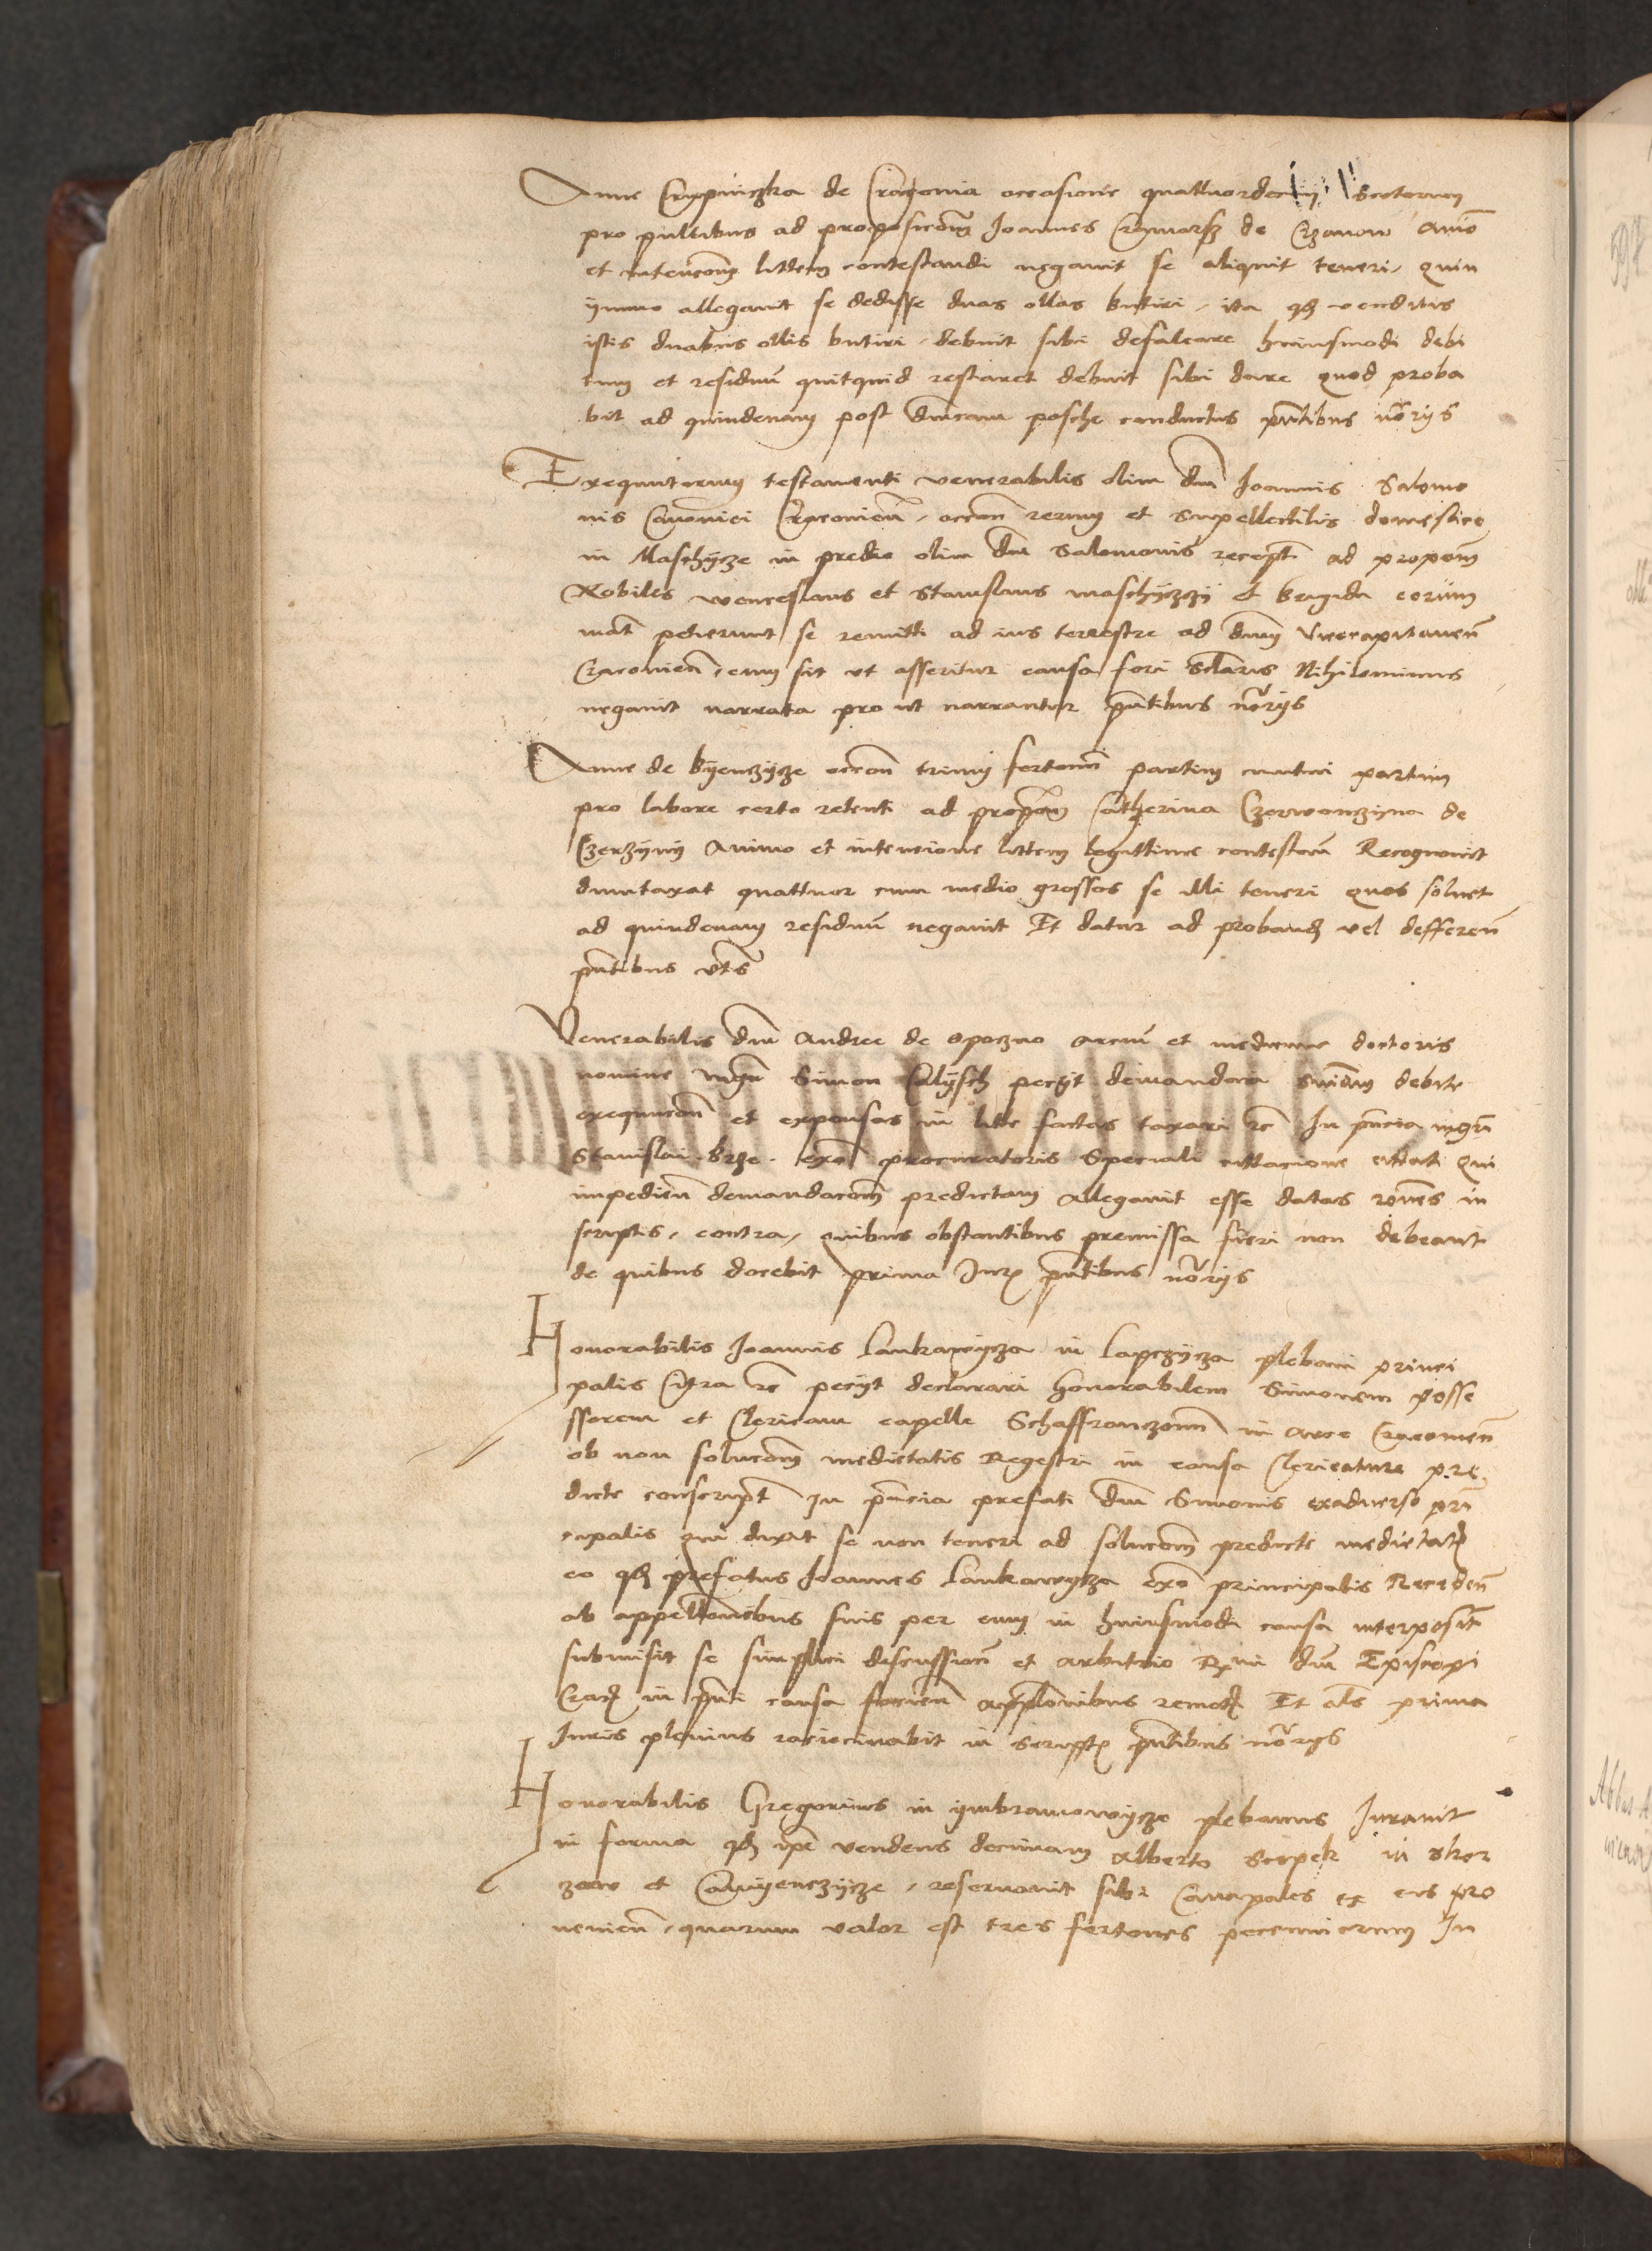 Anne Crupniczka de Cracovia occasione quattuordecim scotorum
pro pullibus ad proposicōm Joannes Crzmarsz de Czanow animo
et intencōne littem contestandi negavit se aliquit teneri, quin
ymmo allegavit se dedisse duas ollas butiri, ita qd venditis
istis duabus ollis butiri, debuit sibi defalcare huiusmodi debi
tum et residuū quitquid restaret debuit sibi dare quod proba
bit ad quindenam post dnicam pasche conductus pntibus norijs
Exequutorum testamenti venerabilis olim dni Joannis Salomo
nis Canonici Cracovien, occon rerum et suppellectilis domestice
in Maschijcze in predio olim dni Salomonis recept ad propom
Nobiles wenceslaus et Stanislaus maschijczij et brigida eorum
mat petierunt se remitti ad ius terrestre ad dnum Vicecapitaneū
Cracovien, cum sit ut asseritur causa fori sclaris Nihilominus
negavit narrata pro ut narrantur pntibus norijs
Anne de bijenczijcze occon trium fertonū partim mutui partim
pro labore certo retenti ad propom Catherina Czerwonczijna de
Czerzijnij animo et intencione littem legittime contestan Recognovit
dumtaxat quattuor cum medio grossos se illi teneri quos solvet
ad quindenam residuū negavit Et datur ad proband vel defferen
pntibus vts
Venerabilis dni Andree de opoczno arciū et medicine doctoris
nomine mgr Simon Calijsch pecijt demandari snīam debite
exequucōni et expensas in lite factas taxari rc In pncia mgri
Stanislai Brze. exo procuratoris speciali cittacione cittati qui
impedien demandacōm predictam allegavit esse datas rones in
scriptis, contra, quibus obstantibus premissa fieri non debeant
de quibus docebit prima Jur pntibus norijs
Honorabilis Joannis Lankawijcza in Lapczijcza plebani princi
palis Citra rc pecijt declarari honorabilem Simonem posse
ssorem et Clericum capelle Schaffranczonū in arce Cracovien
ob non solucōm medietatis Regestri in causa Clericature pre
dicte conscript In pncia prefati dni Simonis exadverso prin
cipalis qui dixit se non teneri ad solucōm predicte medietat
eo qd prefatus Joannes Lankawijcza exo principalis Receden
ab appellonibus suis per eum in huiusmodi causa interposit
submisit se simplici discussioni et arbitrio Rmi dni Episcopi
Crac in pnti causa facien applonibus remot Et als prima
Juris plenius raciocinabit in script pntibus norijs
Honorabilis Gregorius in ijmbramowijcze plebanus Juravit
in forma qd ipe vendens decimam Alberto scopek in skor
czow et Cawijenczijcze, reservavit sibi Canapales ex eis pro
venien, quarum valor est tres fertones pecuniarum In